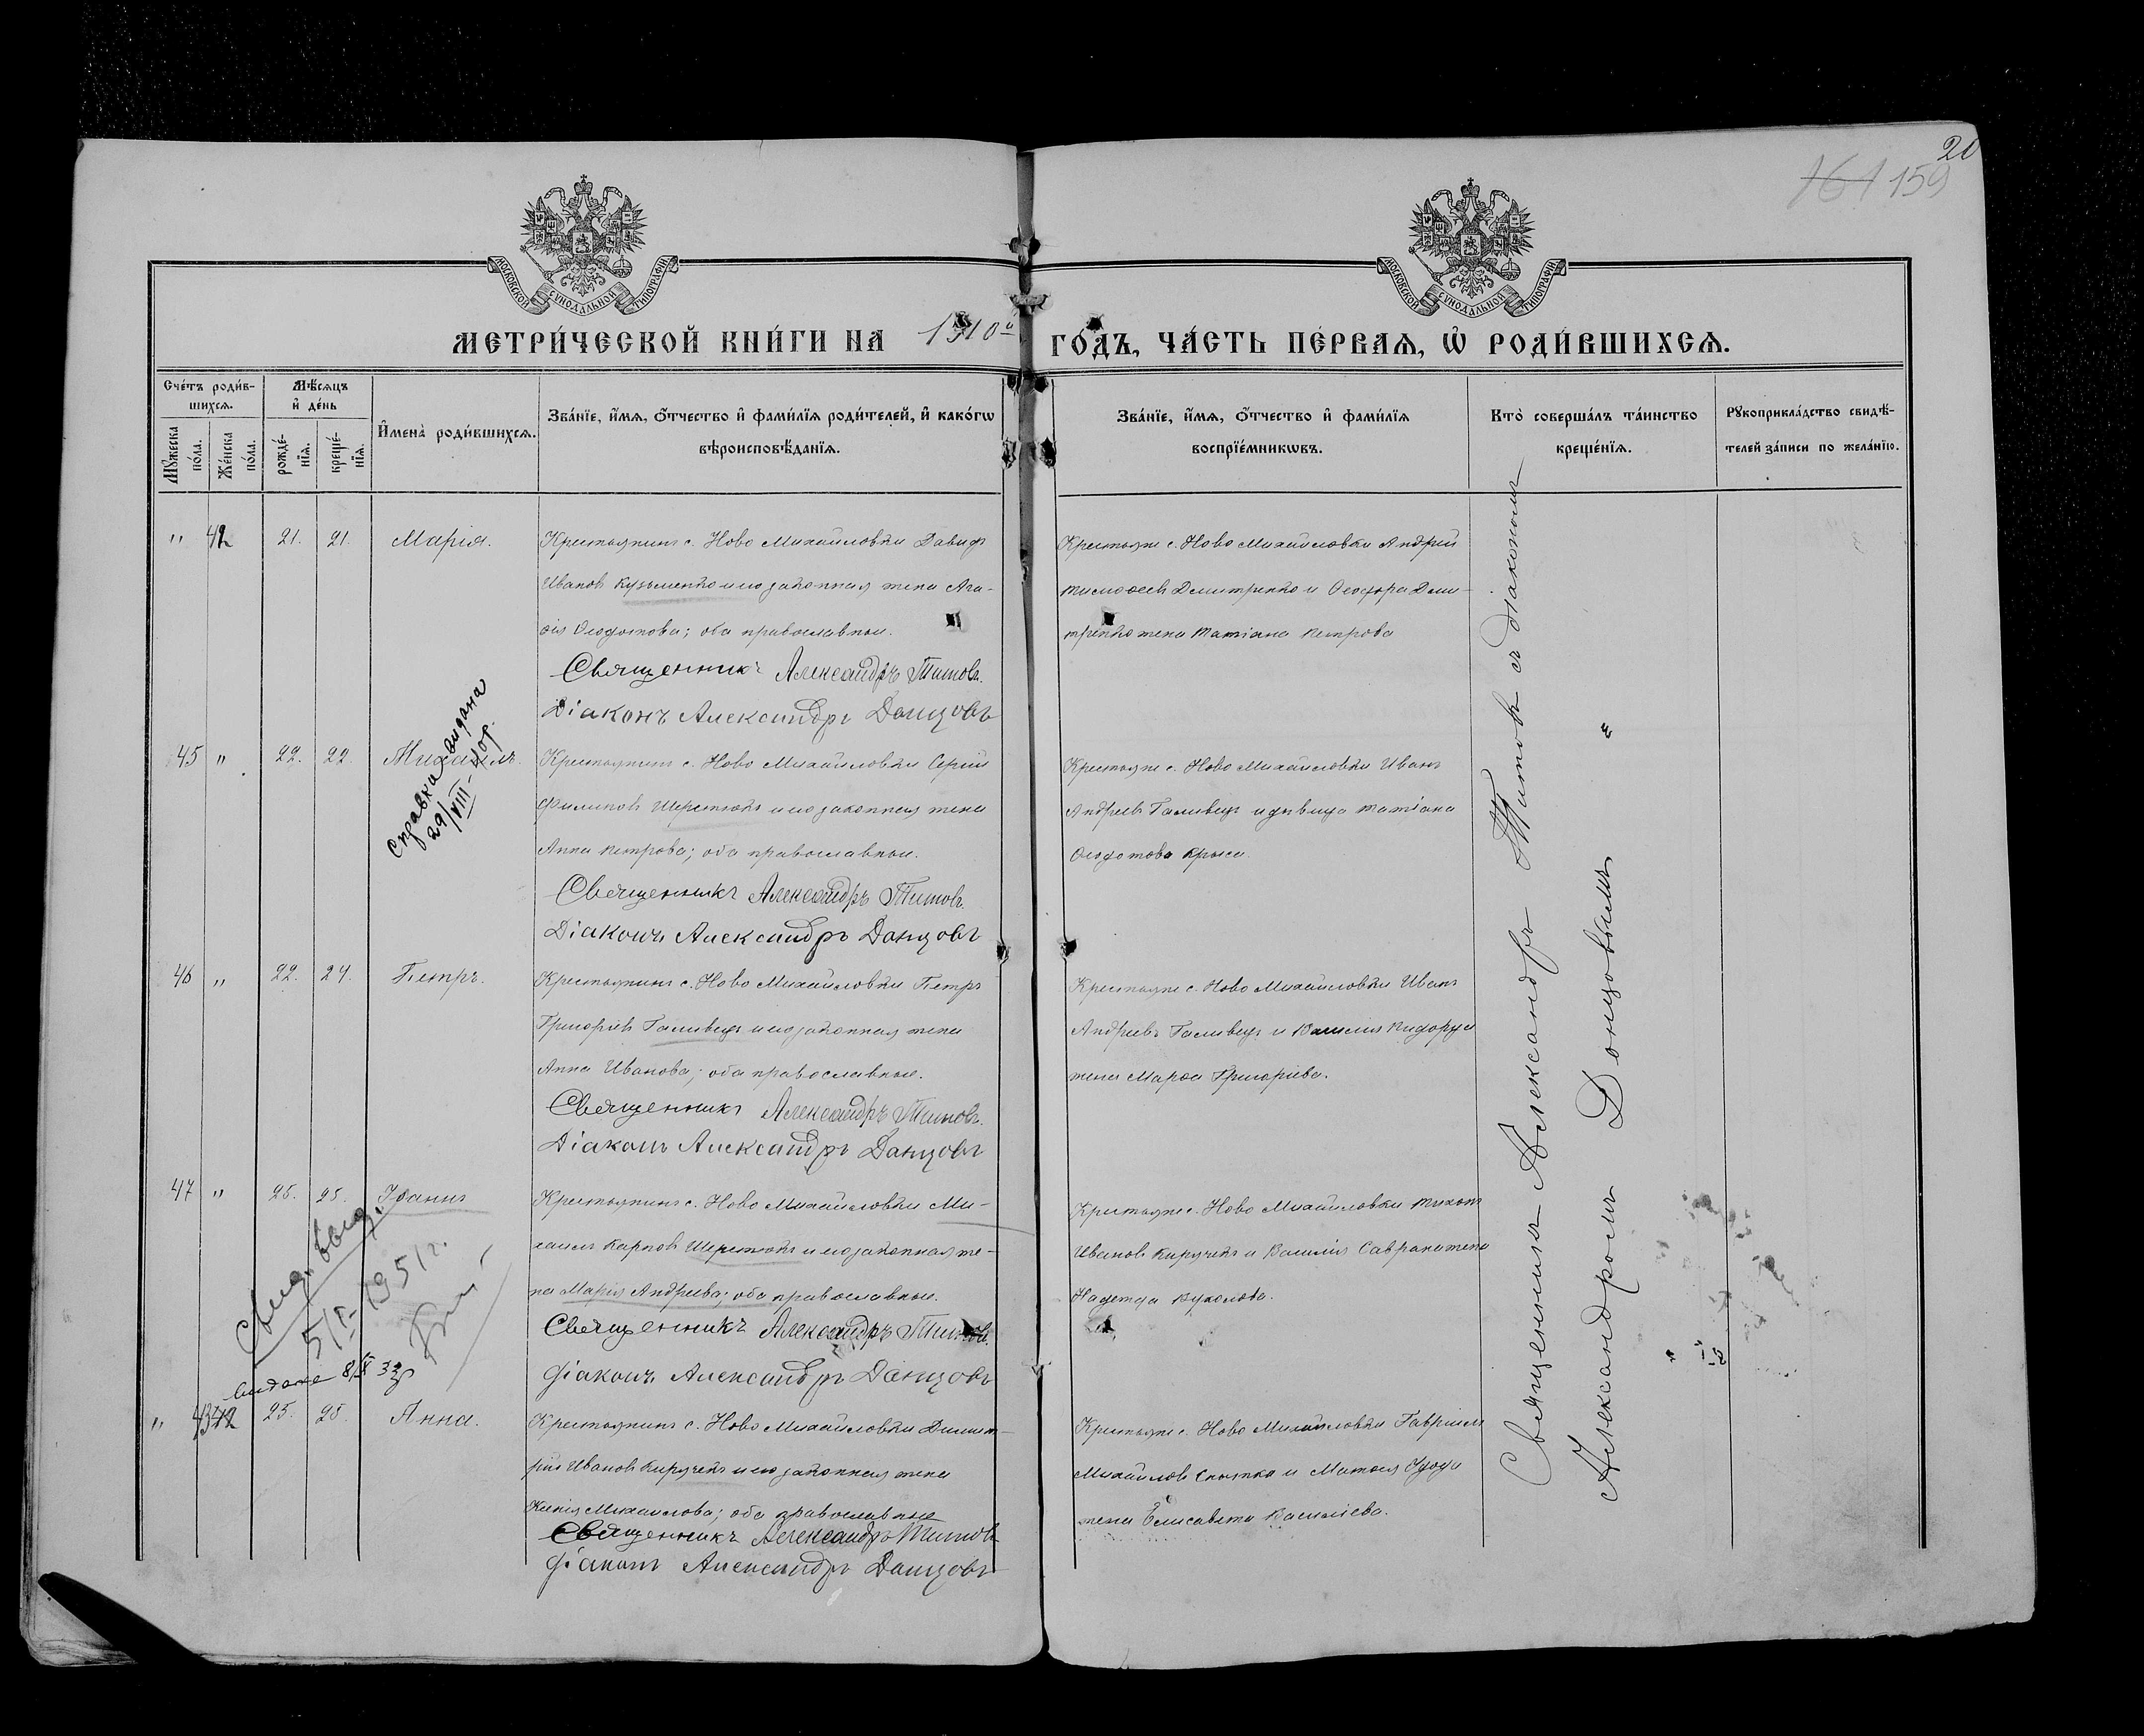 20
161 159
МОСКОВСКОЙ СѴНОДАЛЬНОЙ ТИПОГРАФІИ
МОСКОВСКОЙ СѴНОДАЛЬНОЙ ТИПОГРАФІИ
МЕТРИ́ЧЕСКОЙ КНИ́ГИ НА 1910й ГО́ДЪ, ЧА́СТЬ ПЕ́РВАѦ, Ѡ҆ РОДИ́ВШИХСѦ.
Сче́тъ роди́в-
шихсѧ.
Мꙋ́жеска по́ла.
Же́нска по́ла.
Мѣ́сѧцъ
и҆ де́нь
рожде́-
нїѧ.
креще́-
нїѧ.
И҆мена̀ роди́вшихсѧ.
Зва́нїе, и҆́мѧ, ѻ҆́тчество и҆ фами́лїѧ роди́телей, и҆ како́гѡ
вѣроисповѣ́данїѧ.
Зва́нїе, и҆́мѧ, ѻ҆́тчество и҆ фами́лїѧ
воспрїе́мникѡвъ.
Кто̀ соверша́лъ та́инство
креще́нїѧ.
Рꙋкоприкла́дство свидѣ́-
телей за́писи по жела́нїю.
" 42 21. 21. Марія.
Крестьянинъ с. Ново Михайловки Давидъ
Ивановъ Кузьменко и его законная жена Ага-
ѳія Ѳеодотова; оба православные.
Священникъ Александръ Титовъ.
Діаконъ Александръ Донцовъ
Крестьяне с. Ново Михайловки Андрей
Тимоѳеевъ Дмитренко и Ѳеодора Дми-
тренко жена Татіана Петрова
45 " 22. 22. Михаилъ.
Справка выдана
29/VIII-
Крестьянинъ с. Ново Михайловки Сергій
Филиповъ Шерстюкъ и его законная жена
Анна Петрова; оба православные.
Священникъ Александръ Титовъ.
Діаконъ Александръ Донцовъ
Крестьяне с. Ново Михайловки Иванъ
Андреевъ Галивецъ и дѣвица Татіана
Ѳеодотова Крыса.
46 " 22. 24. Петръ.
Крестьянинъ с. Ново Михайловки Петръ
Григоріевъ Галивецъ и его законная жена
Анна Иванова; оба православные.
Священникъ Александръ Титовъ.
Діаконъ Александръ Донцовъ
Крестьяне с. Ново Михайловки Иванъ
Андреевъ Галивецъ и Василія
жена Марѳа Григоріева.
47 " 25. 25. Іоаннъ
Свид. выд.
5/I-1951г.
Крестьянинъ с. Ново Михайловки Ми-
хаилъ Карповъ Шерстюкъ и его законная же-
на Марія Андреева; оба православные.
Священникъ Александръ Титовъ.
Діаконъ Александръ Донцовъ
Крестьяне с. Ново Михайловки Тихонъ
Ивановъ Киричекъ и Василія жена
Надежда
видане 8/X 33
" 43 25. 25. Анна.
Крестьянинъ с. Ново Михайловки Димит-
рій Ивановъ Киричекъ и его законная жена
Ксенія Михаилова; оба православные
Священникъ Александръ Титовъ
Діаконъ Александръ Донцовъ
Крестьяне с. Ново Михайловки Гавріилъ
Михайловъ и Матѳея
жена Елисавета Василіева.
Священникъ Александръ Титовъ съ діакономъ
Александромъ Донцовымъ